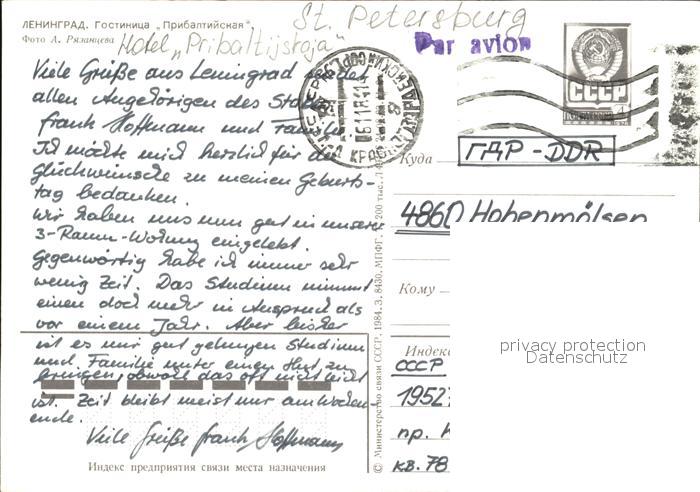 ЛЕНИНГРАД. Гостиница „Прибалтийская“.
Фото А. Рязанцева
St. Petersburg
Hotel „Pribaltijskaja“
Par avion
СССР
Viele Grüße aus Leningrad sendet
allen Angehörigen des Stabes
Frank Hoffmann und Familie.
Ich möchte mich herzlich für die
Glückwünsche zu meinen Geburts-
tag bedanken.
Wir haben uns nun gut in unserer
3-Raum-Wohnung eingelebt.
Gegenwärtig habe ich immer sehr
wenig Zeit. Das Studium nimmt
einen doch mehr in Anspruch als
vor einem Jahr. Aber bisher
ist es mir gut gelungen Studium
und Familie unter einen Hut zu
bringen, obwohl das oft nicht leicht
ist. Zeit bleibt meist nur am Wochen-
ende.
Viele Grüße Frank Hoffmann
Индекс предприятия связи места назначения
© Министерство связи СССР. 1984. З. 8430. МПФГ.
Куда
ГДР - DDR
4860 Hohenmölsen
Кому
privacy protection
Datenschutz
Индекс
СССР
1952
пр. К
кв. 78